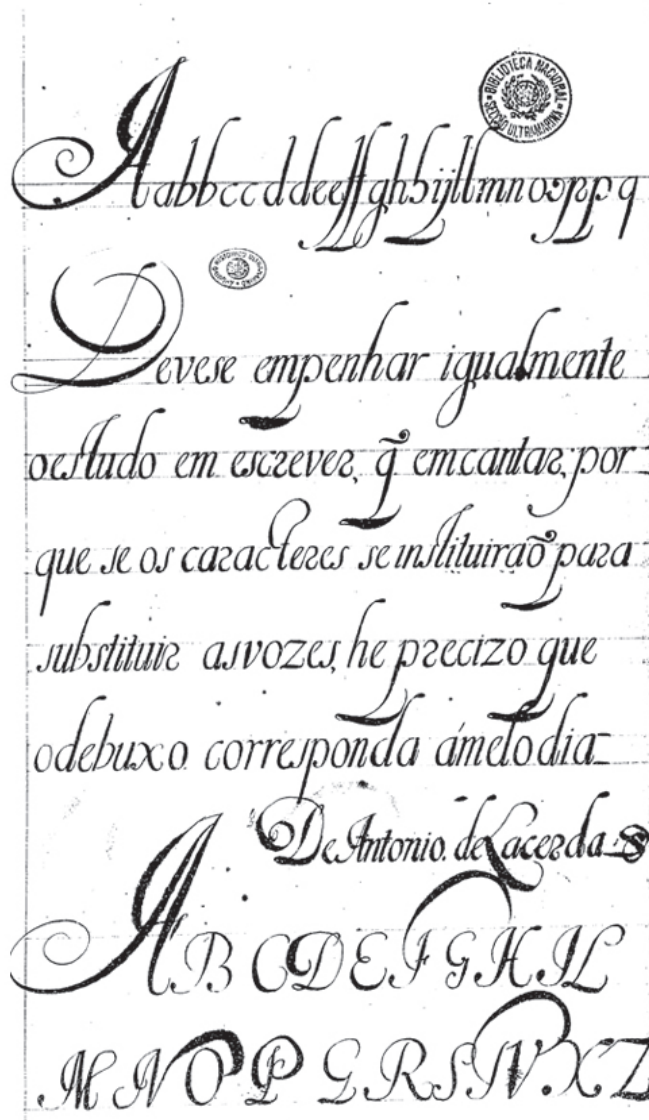 BIBLIOTECA NACIONAL
SECÇÃO ULTRAMARINA
A a b b c c d d e e f f g h h i j l l m n o o p p q
Devese empenhar igualmente
oestudo em escrever, q̃ emcantar, por
que se os caracteres se instituiraõ para
substituir asvozes, he precizo que
odebuxo corresponda ámelodia
De Antonio de Lacerda
A B C D E F G H I L
M N O P Q R S T V X Z